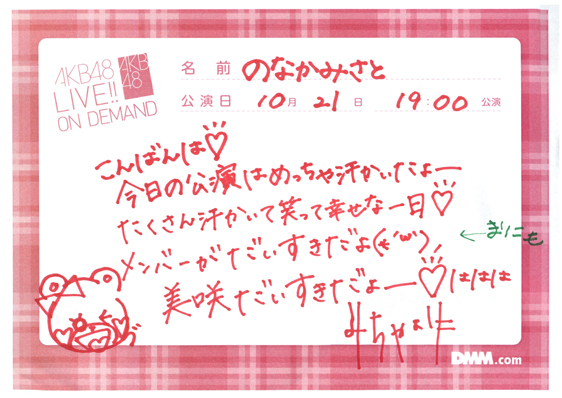 AKB48
LIVE!!
ON DEMAND
AKB
48
名前 のなかみさと
公演日 10月 21日 19:00 公演
こんばんは♡
今日の公演はめっちゃ汗かいたよー
たくさん汗かいて笑って幸せな一日♡
メンバーがだいすきだよ
美咲だいすきだよー♡ははは
みちゃぽに
DMM.com